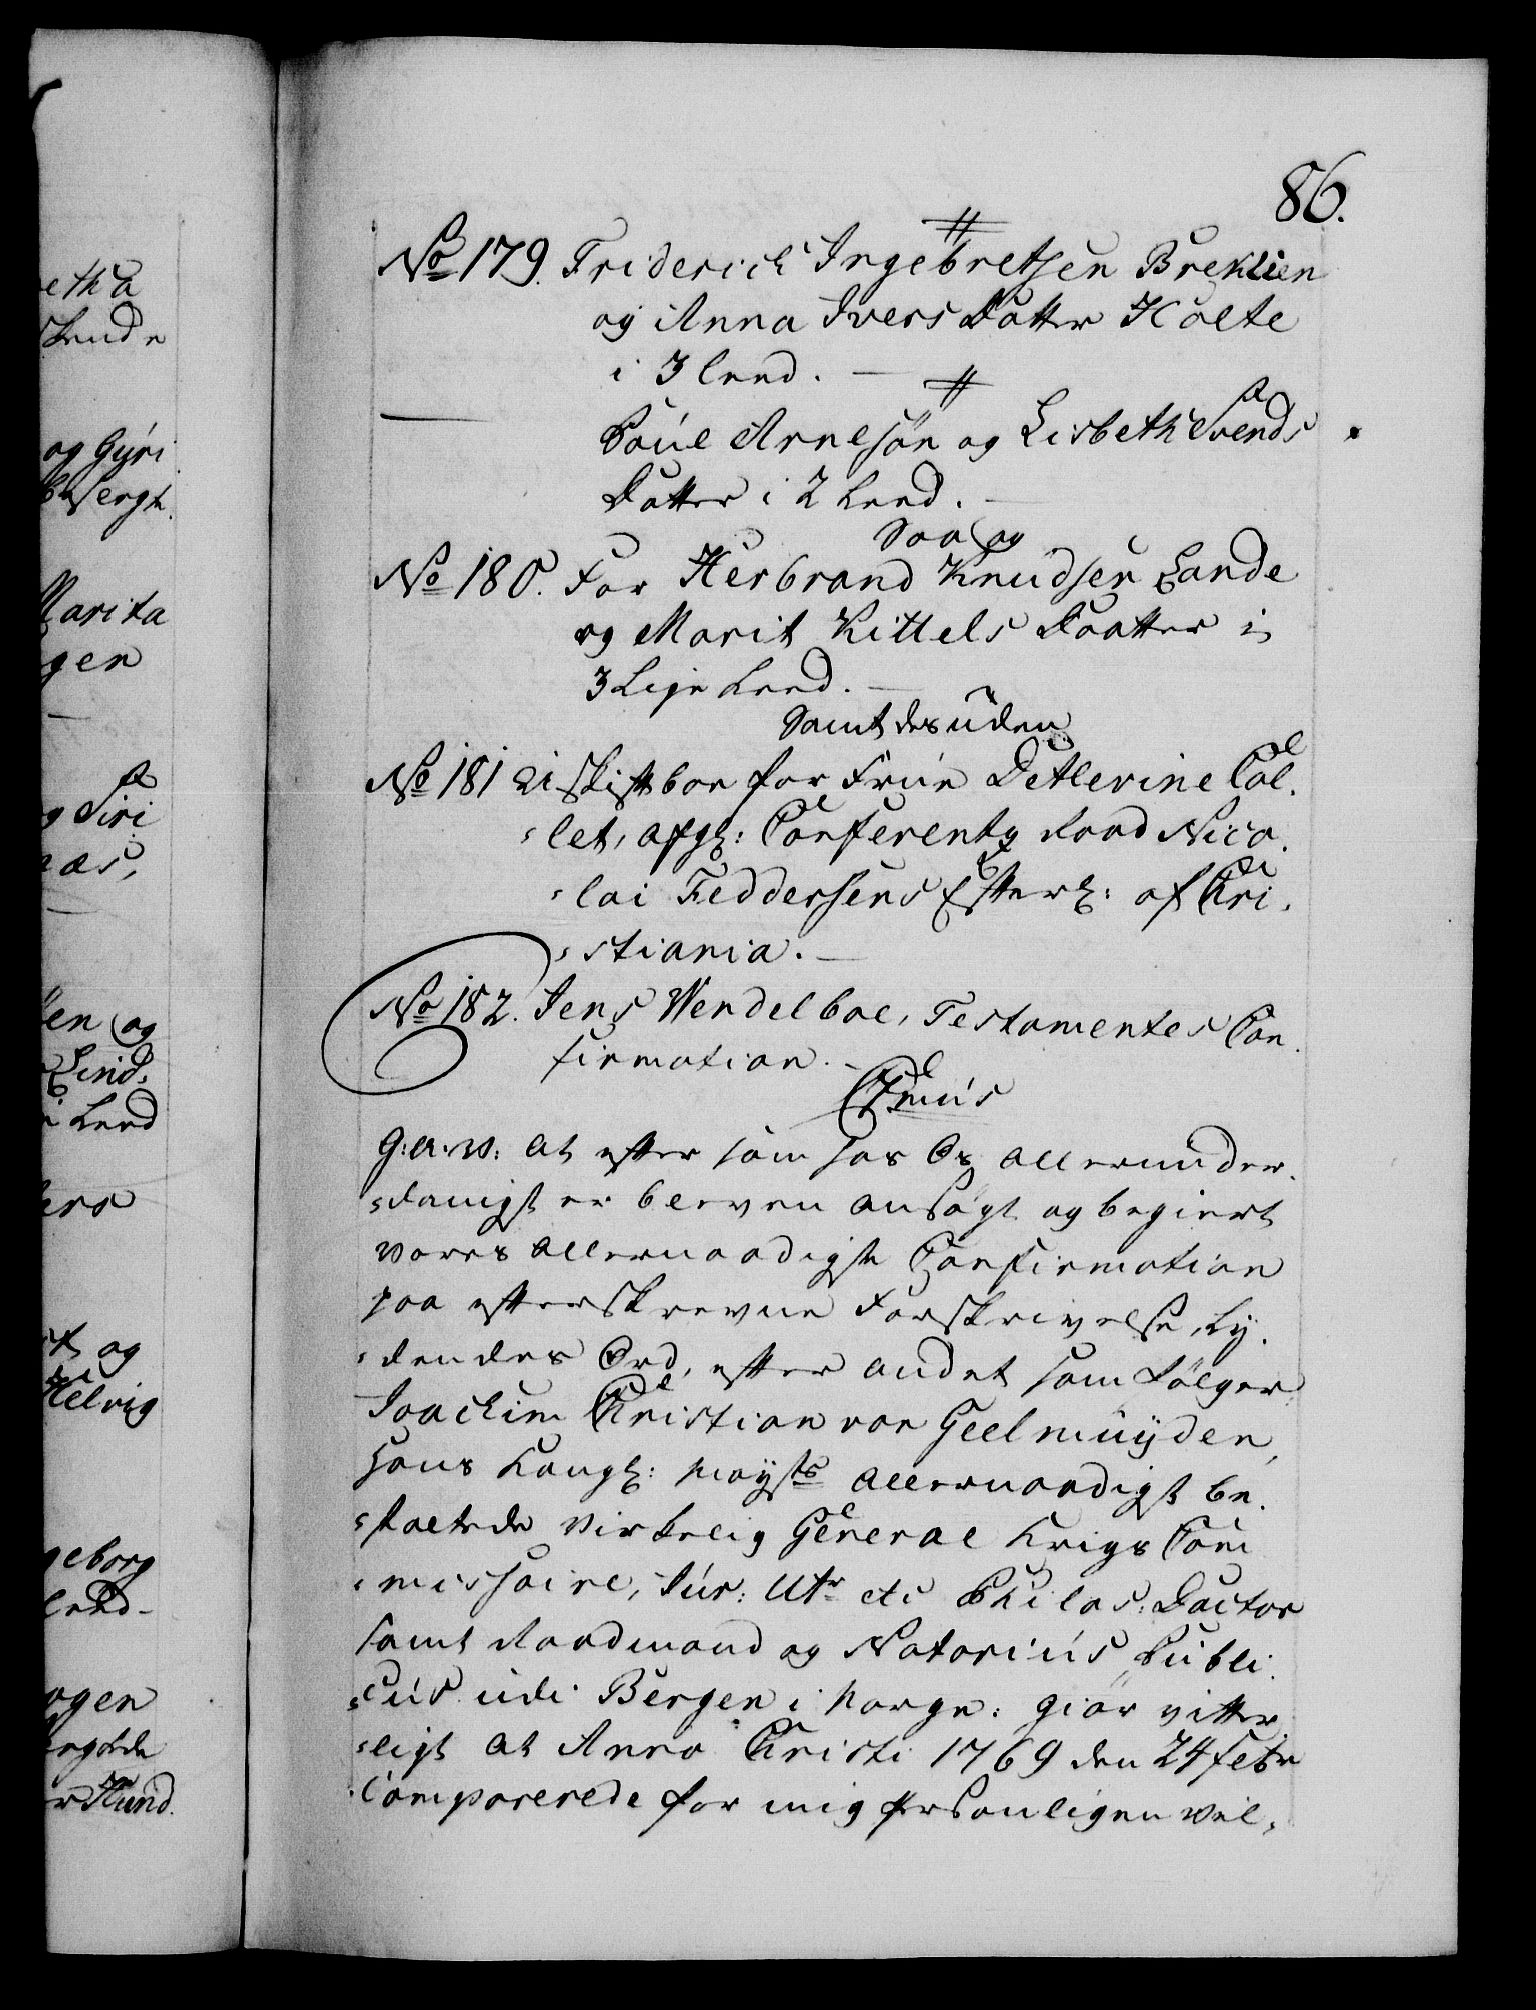 86.
No 179. Friderich Ingebretsen Breklien
og Anna Ivers Datter Holte
i 3 Leed.
Poúl Arnesön og Lisbeth Svends
Datter i 2 Leed.
Saa og
No 180. For Herbrand Knudsen Sande
og Marit Kittels Daatter i
3 Lige Leed.
Samt desuden
No 181 at skifte boe for Frue Detlevine Col,
let, afgl: Conferentz Raad Nico,
lai Feddersens Efterl: af Chri,
stiania.
No 182. Jens Wendelboe, Testamentes Con,
firmation.
G:A:V: At efter som hos Os allerunder,
danigst er bleven ansögt og begiert
vores allernaadigste Confirmation
paa efterskrevne Forskrivelse, Ly,
dendes Ord, efter andet som fölger
Joachim Christian von Geelmuyden,
Hans Kongl: Mayts allernaadigst be,
staltede virkelig General Krigs Com
missaire, Jur: Utr et Philos: Doctor
samt Raadmand og Notarius Publi,
cus udi Bergen i Norge: giör vitter,
ligt at Anno Christi 1769 den 24 Febr
Comparerede for mig personligen Vel,
etha
Leed
og Gÿri
Marita
gen
Siri
næs,
og
Lind,
i Leed
og
Helvig
geborg
Leed
ogen
Hund.